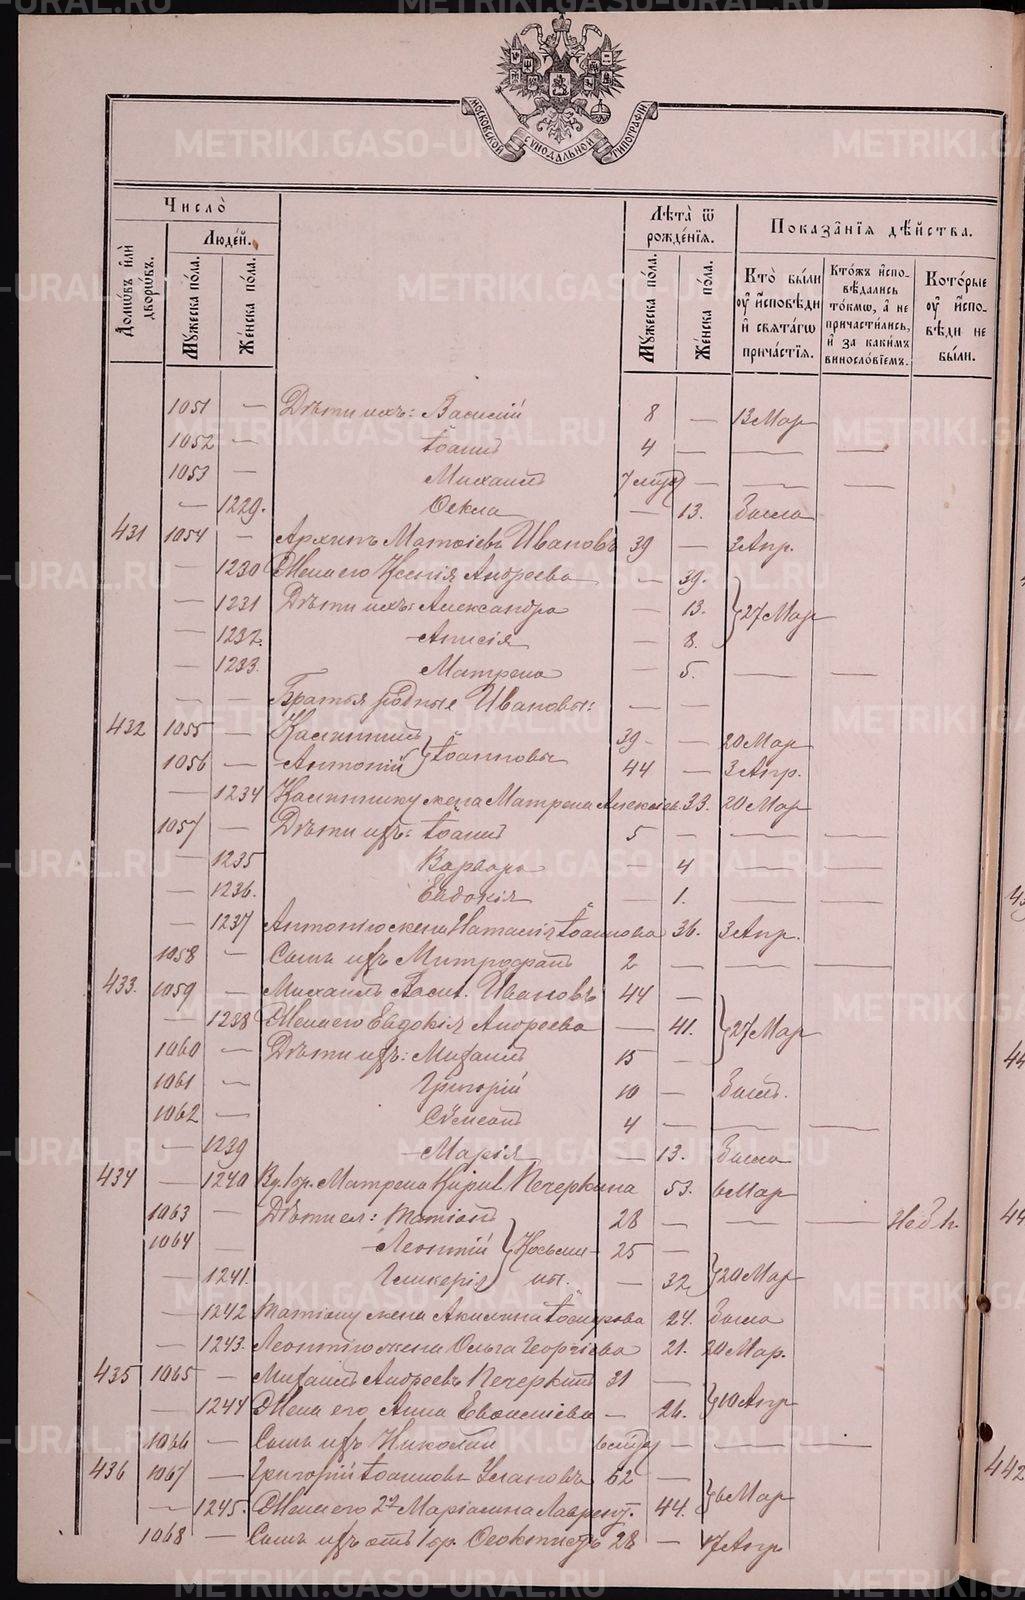 МОСКОВСКОЙ СѴНОДАЛЬНОЙ ТИПОГРАФІИ
Число̀
Люде́й.
Домѡ́въ и҆лѝ дворѡ́въ.
Мꙋ́жеска по́ла.
Же́нска по́ла.
Лѣ́та ѿ рожде́нїѧ.
Мꙋ́жеска по́ла.
Же́нска по́ла.
Показа̑нїѧ дѣ́йства.
Кто̀ бы́ли ᲂу҆ и҆сповѣ́ди и҆ свѧта́гѡ прича́стїѧ.
Кто́жъ и҆спо-вѣ́дались то́кмѡ, а҆ не причасти́лись, и҆ за каки́мъ винослові́емъ.
Кото́рые ᲂу҆ и҆спо-вѣ́ди не бы́ли.
1051 — Дѣти ихъ: Василій 8 — 13 Мар
1052 — Іоаннъ 4 — — —
1053 — Михаилъ 7 — — —
— 1229. Ѳекла — 13. Была
431 1054 — Архипъ Матѳіевъ Ивановъ 39 — 3 Апр.
— 1230 Жена его Ксенія Андреева — 39.
— 1231 Дѣти ихъ: Александра — 13. } 27 Мар
— 1232. Анисія — 8.
— 1233. Матрена — 5. — —
— — Братья родные Ивановы: — —
432 1055 — Калинникъ } Іоанновы 39 — 20 Мар
1056 — Антоній 44 — 3 Апр.
— 1234 Калиннику жена Матрена Алексіев 33. 20 Мар
1057 — Дѣти ихъ: Іоаннъ 5 — — —
— 1235 Варвара — 4 — —
— 1236. Евдокія — 1. — —
— 1237 Антонію жена Наталія Іоаннова 36. 3 Апр.
1058 — Сынъ ихъ Митрофанъ 2 — — —
433. 1059 — Михаилъ Васил. Ивановъ 44 —
— 1238 Жена его Евдокія Андреева — 41. } 27 Мар
1060 — Дѣти ихъ: Михаилъ 15 —
1061 — Григорій 10 — Былъ.
1062 — Сѵмеонъ 4 — — —
— 1239 Марія — 13. Была
434 — 1240 Матрена Кирил. Печеркина 53. 6 Мар
1063 — Дѣти ея: 28 — — — Не б.
1064 — Леонтій } Косьми- 25 —
— 1241. Гликерія ны. — 32 } 20 Мар
— 1242 жена Акилина 24. Была
— 1243. Леонтію жена Ольга Георгіева 21. 20 Мар.
435 1065 — Михаилъ Андреевъ Печеркинъ 31 —
— 1244 Жена его Анна — 26. } 10 Апр
1066 — Сынъ ихъ Николай — — —
436 1067 — Григорій Іоанновъ 62 —
— 1245. Жена его 2я Маріамна Лаврент. 44. } 6 Мар
1068 — Сынъ ихъ отъ 1 бр. Ѳеоктистъ 28 — 17 Апр
442
METRIKI.GASO-URAL.RU